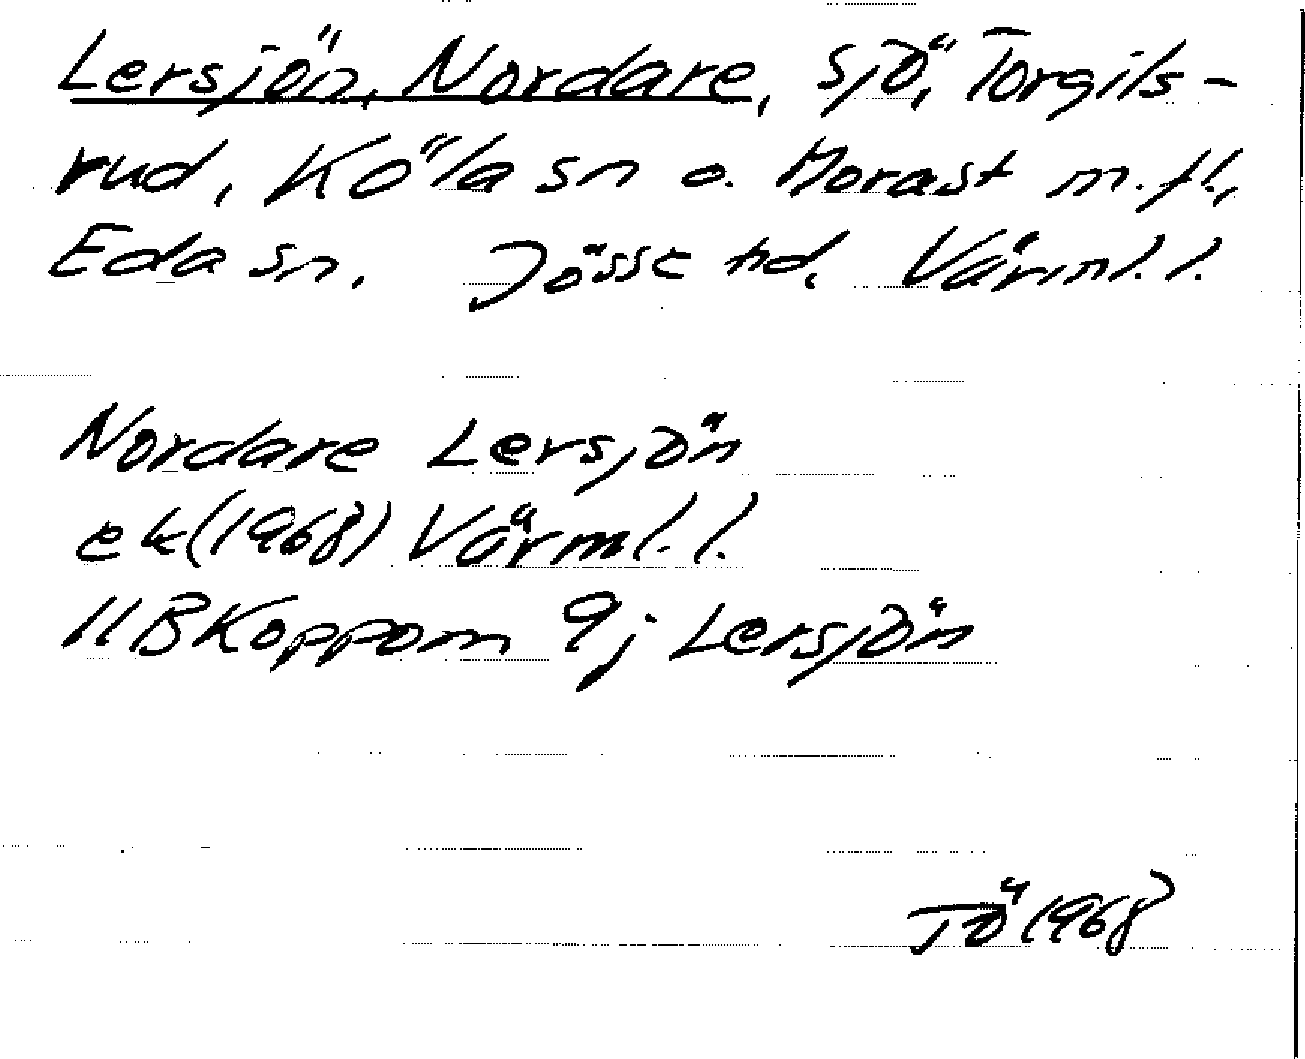 Lersjön, Nordare, sjö, Torgils-
rud, Köla sn o. Morast m.fl.,
Eda sn. Jösse hd. Värml. l.
Nordare Lersjön
ek (1968) Värml. l.
11B Koppom 9j Lersjön
TÖ 1968